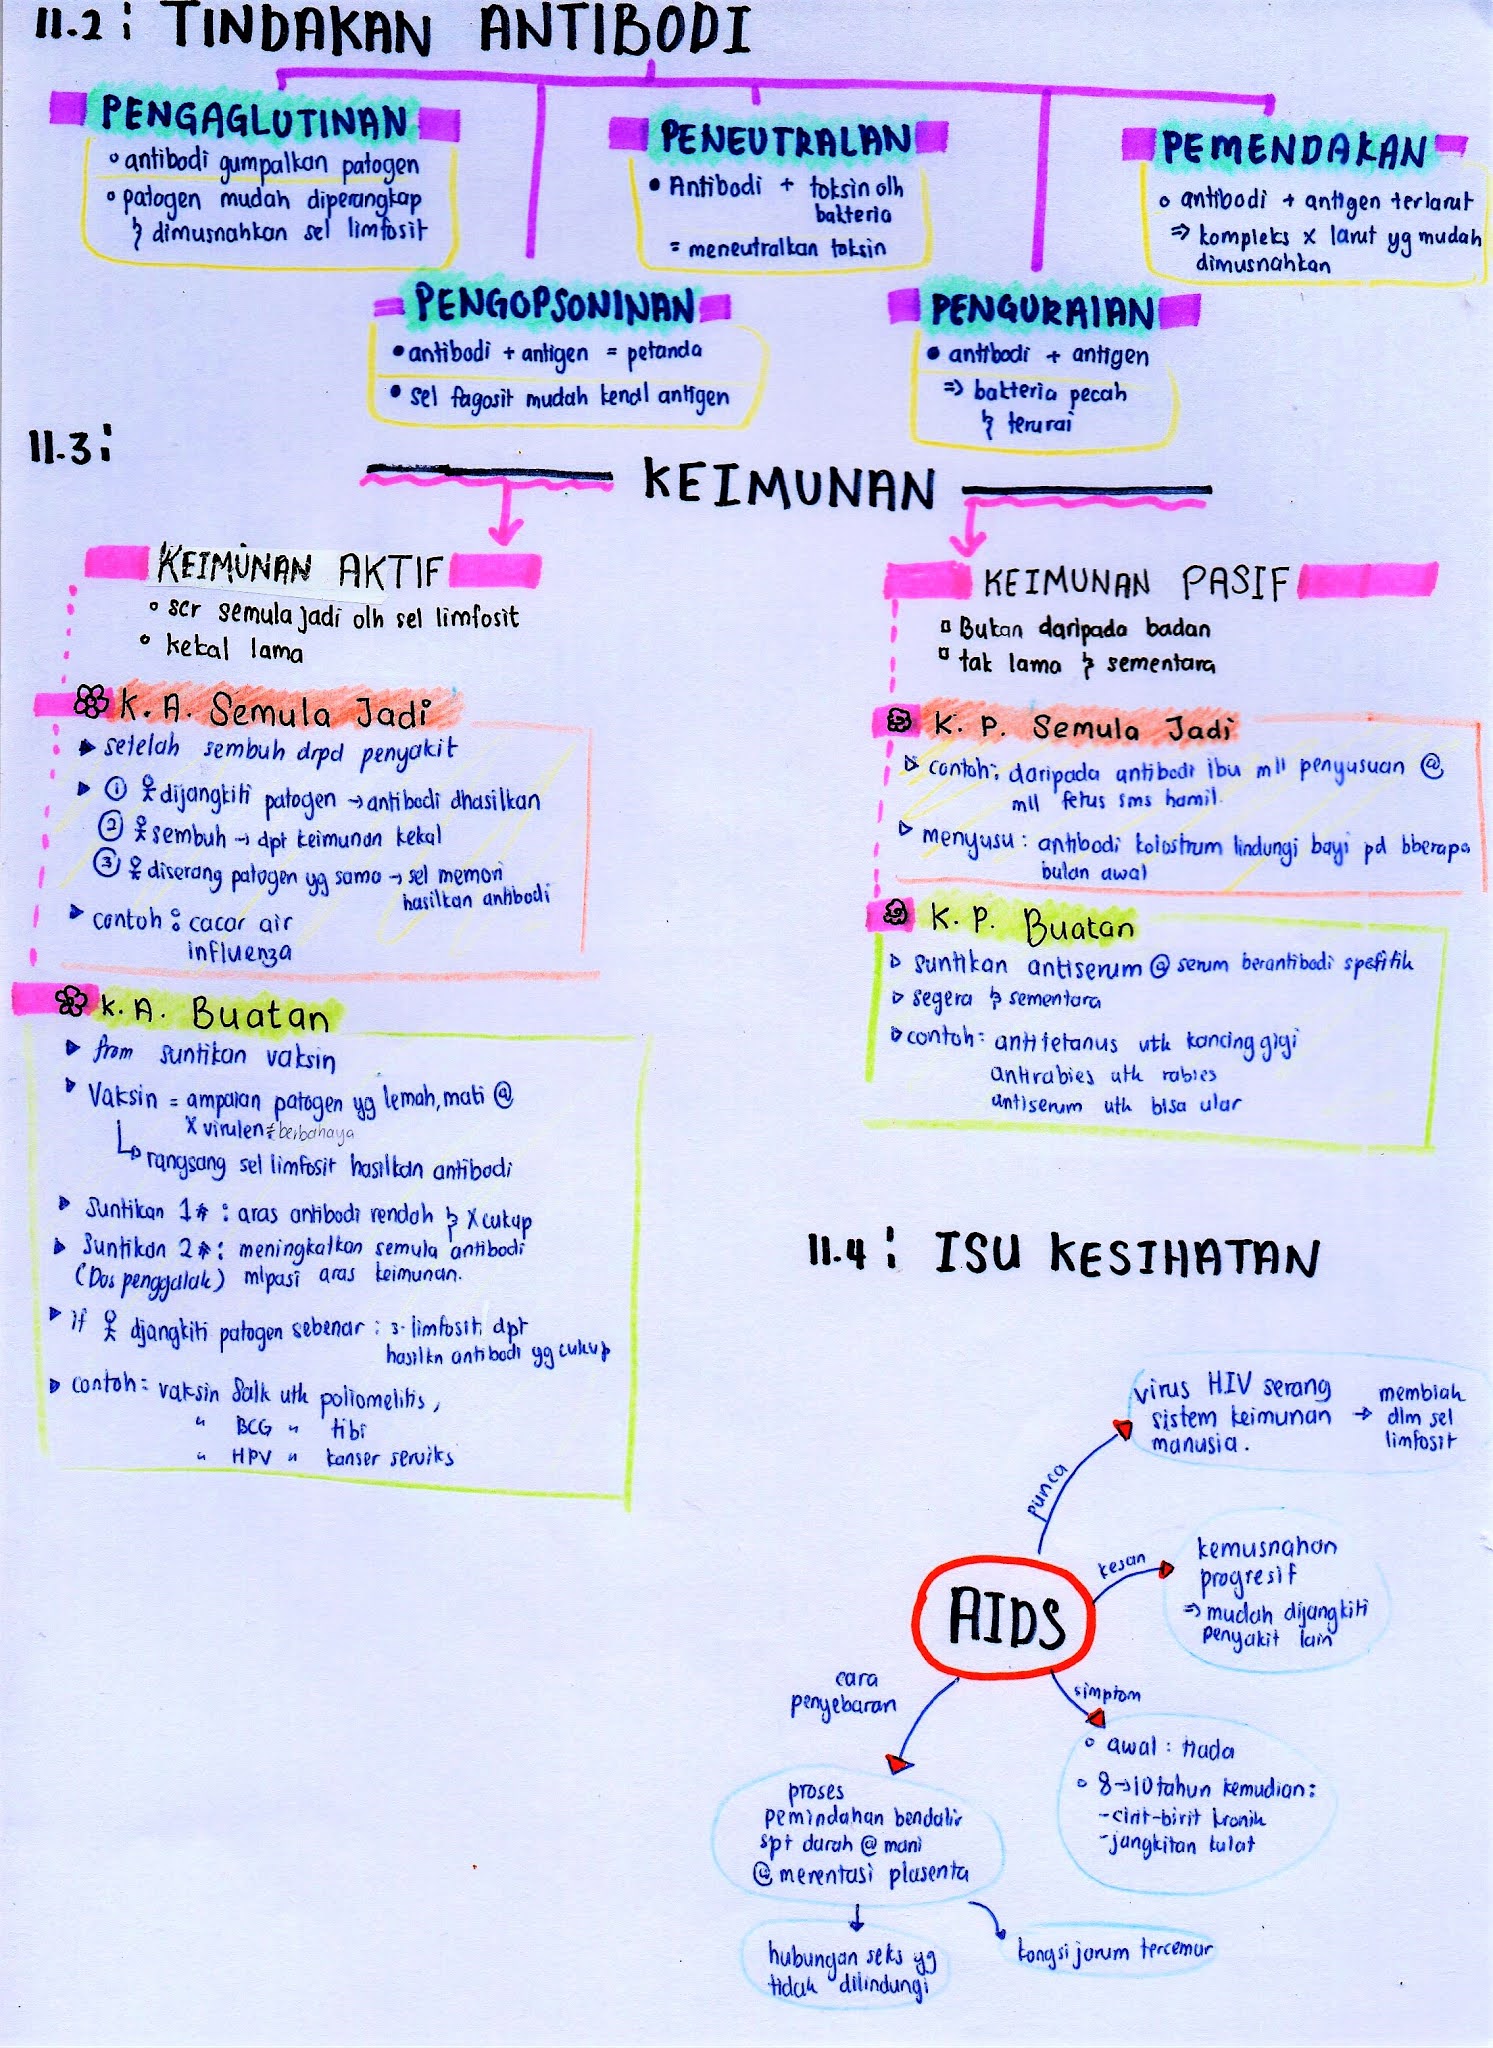 11.2: TINDAKAN ANTIBODI
PENGAGLUTINAN
° antibodi gumpalkan patogen
° patogen mudah diperangkap
& dimusnahkan sel limfosit
PENEUTRALAN
• Antibodi + toksin olh
bakteria
= meneutralkan toksin
PEMENDAKAN
° antibodi + antigen terlarut
⇒ kompleks x larut yg mudah
dimusnahkan
PENGOPSONINAN
• antibodi + antigen = petanda
• sel fagosit mudah kenal antigen
PENGURAIAN
• antibodi + antigen
⇒ bakteria pecah
& terurai
11.3:
KEIMUNAN
KEIMUNAN AKTIF
° scr semula jadi olh sel limfosit
° kekal lama
K. A. Semula Jadi
▶ setelah sembuh drpd penyakit
▶ ① dijangkiti patogen → antibodi dhasilkan
② sembuh → dpt keimunan kekal
③ diserang patogen yg sama → sel memori
hasilkan antibodi
▶ contoh: cacar air
influenza
K. A. Buatan
▶ from suntikan vaksin
▶ Vaksin = ampaian patogen yg lemah, mati @
x virulen ≠ berbahaya
↳ rangsang sel limfosit hasilkan antibodi
▶ Suntikan 1# : aras antibodi rendah & x cukup
▶ Suntikan 2# : meningkatkan semula antibodi
(Dos penggalak) mlpasi aras keimunan.
▶ if djangkiti patogen sebenar : s. limfosit dpt
hasilkn antibodi yg cukup
▶ contoh: vaksin Salk utk poliomelitis,
" BCG " tibi
" HPV " kanser serviks
KEIMUNAN PASIF
▫ Bukan daripada badan
▫ tak lama & sementara
K. P. Semula Jadi
▷ contoh: daripada antibodi ibu mll penyusuan @
mll fetus sms hamil.
▷ menyusu : antibodi kolostrum lindungi bayi pd bberapa
bulan awal
K. P. Buatan
▷ suntikan antiserum @ serum berantibodi spesifik
▷ segera & sementara
▷ contoh: antitetanus utk kancing gigi
antirabies utk rabies
antiserum utk bisa ular
11.4: ISU KESIHATAN
AIDS
punca
virus HIV serang
sistem keimunan
manusia.
→ membiak
dlm sel
limfosit
kesan
kemusnahan
progresif
⇒ mudah dijangkiti
penyakit lain
simptom
° awal : tiada
° 8→10 tahun kemudian:
-cirit-birit kronik
-jangkitan kulat
cara
penyebaran
proses
pemindahan bendalir
spt darah @ mani
@ merentasi plasenta
hubungan seks yg
tidak dilindungi
kongsi jarum tercemar